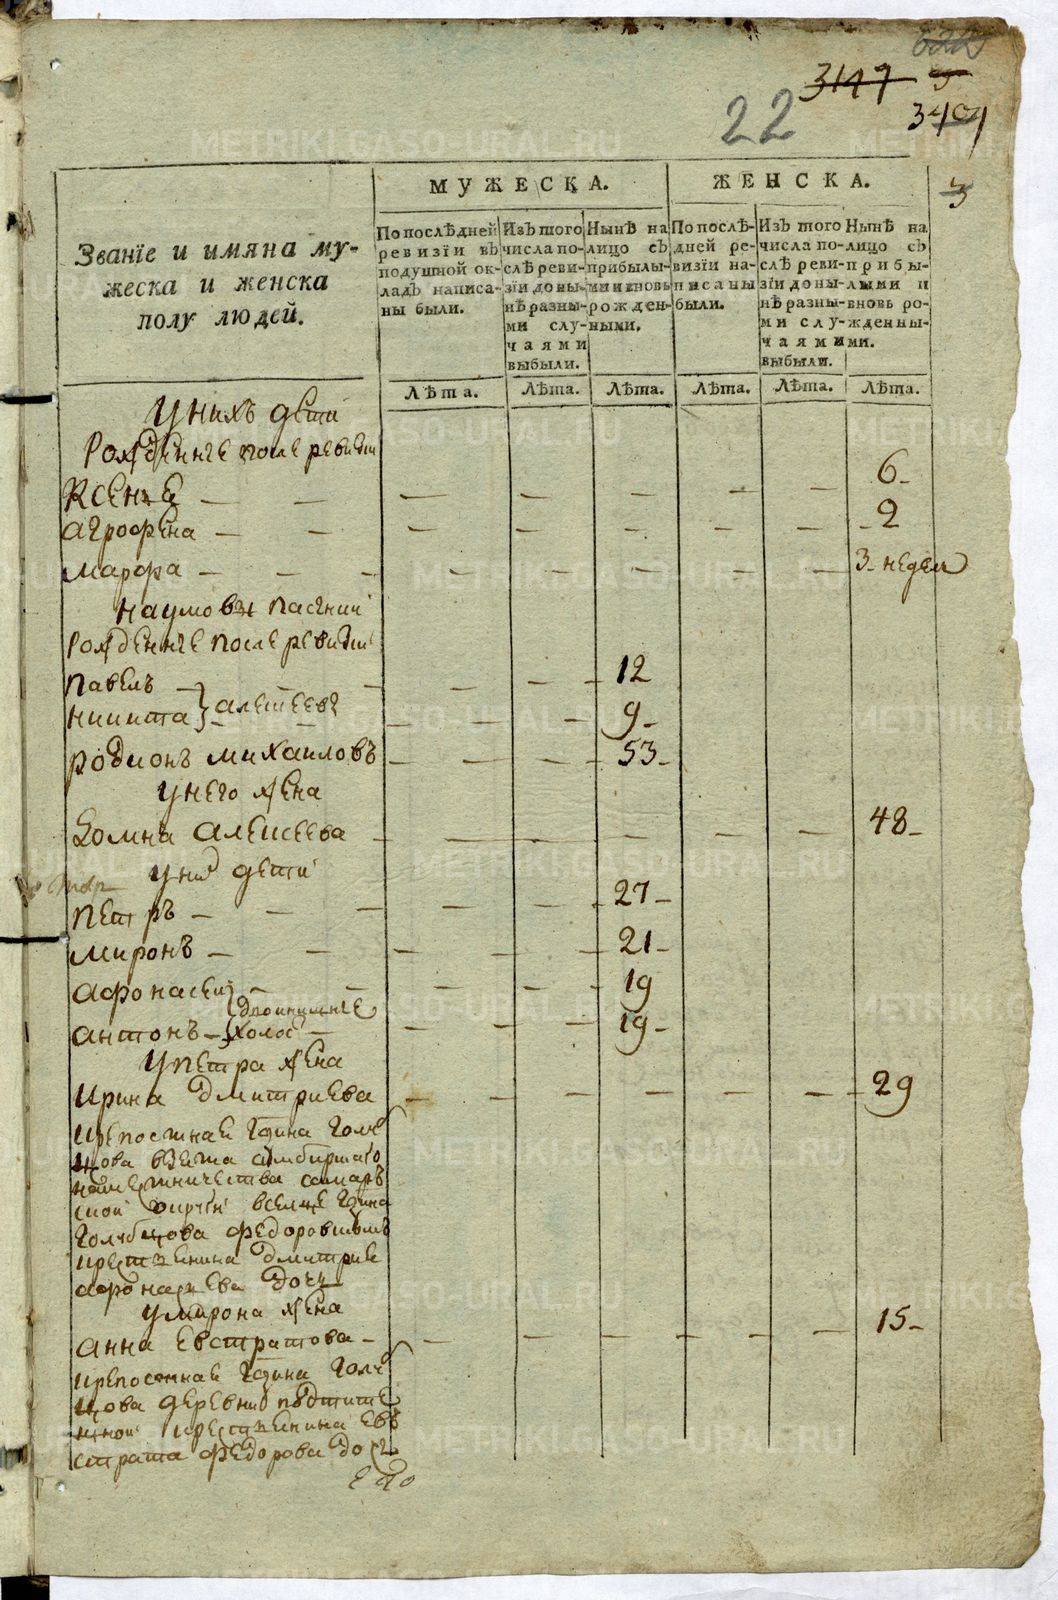 22
3147
3404
МУЖЕСКА.
ЖЕНСКА.
3
Званїе и имяна му-
жеска и женска
полу людей.
По послѣдней
ревизїи въ
подушной ок-
ладъ написа-
ны были.
Изъ того
числа по-
слѣ реви-
зїи доны-
нѣ разны-
ми слу-
чаями
выбыли.
Нынѣ на
лицо съ
прибылы-
ми и вновь
рожден-
ными.
По послѣ-
дней ре-
визїи на-
писаны
были.
Изъ того
числа по-
слѣ реви-
зїи доны-
нѣ разны-
ми слу-
чаями
выбыли.
Нынѣ на
лицо съ
прибы-
лыми и
вновь ро-
жденны-
ми.
Лѣта. Лѣта. Лѣта. Лѣта. Лѣта. Лѣта.
у нихъ дети
рожденные после ревизии
Ксенья 6
агрофена 2
марфа 3 недели
наумовы пасынки
рожденные после ревизии
павелъ 12
никита алексеевы 9
родионъ михаиловъ 53
у него жена
домна алексеева 48
у них дети
петръ 27
миронъ 21
афонасеи 19
двоинишные
антонъ холос 19
у петра жена
ирина дмитриева 29
крепостная гдина голуб
цова взята симбирскаго
наместничества самарс
кой округи в селце гдина
голубцова федоровскомъ
крестьянина дмитрия
афонасьева дочь
у мирона жена
анна евстратова 15
крепостная гдина голуб
цова деревни
крестьянина евс
страта федорова дочь
ево
METRIKI.GASO-URAL.RU